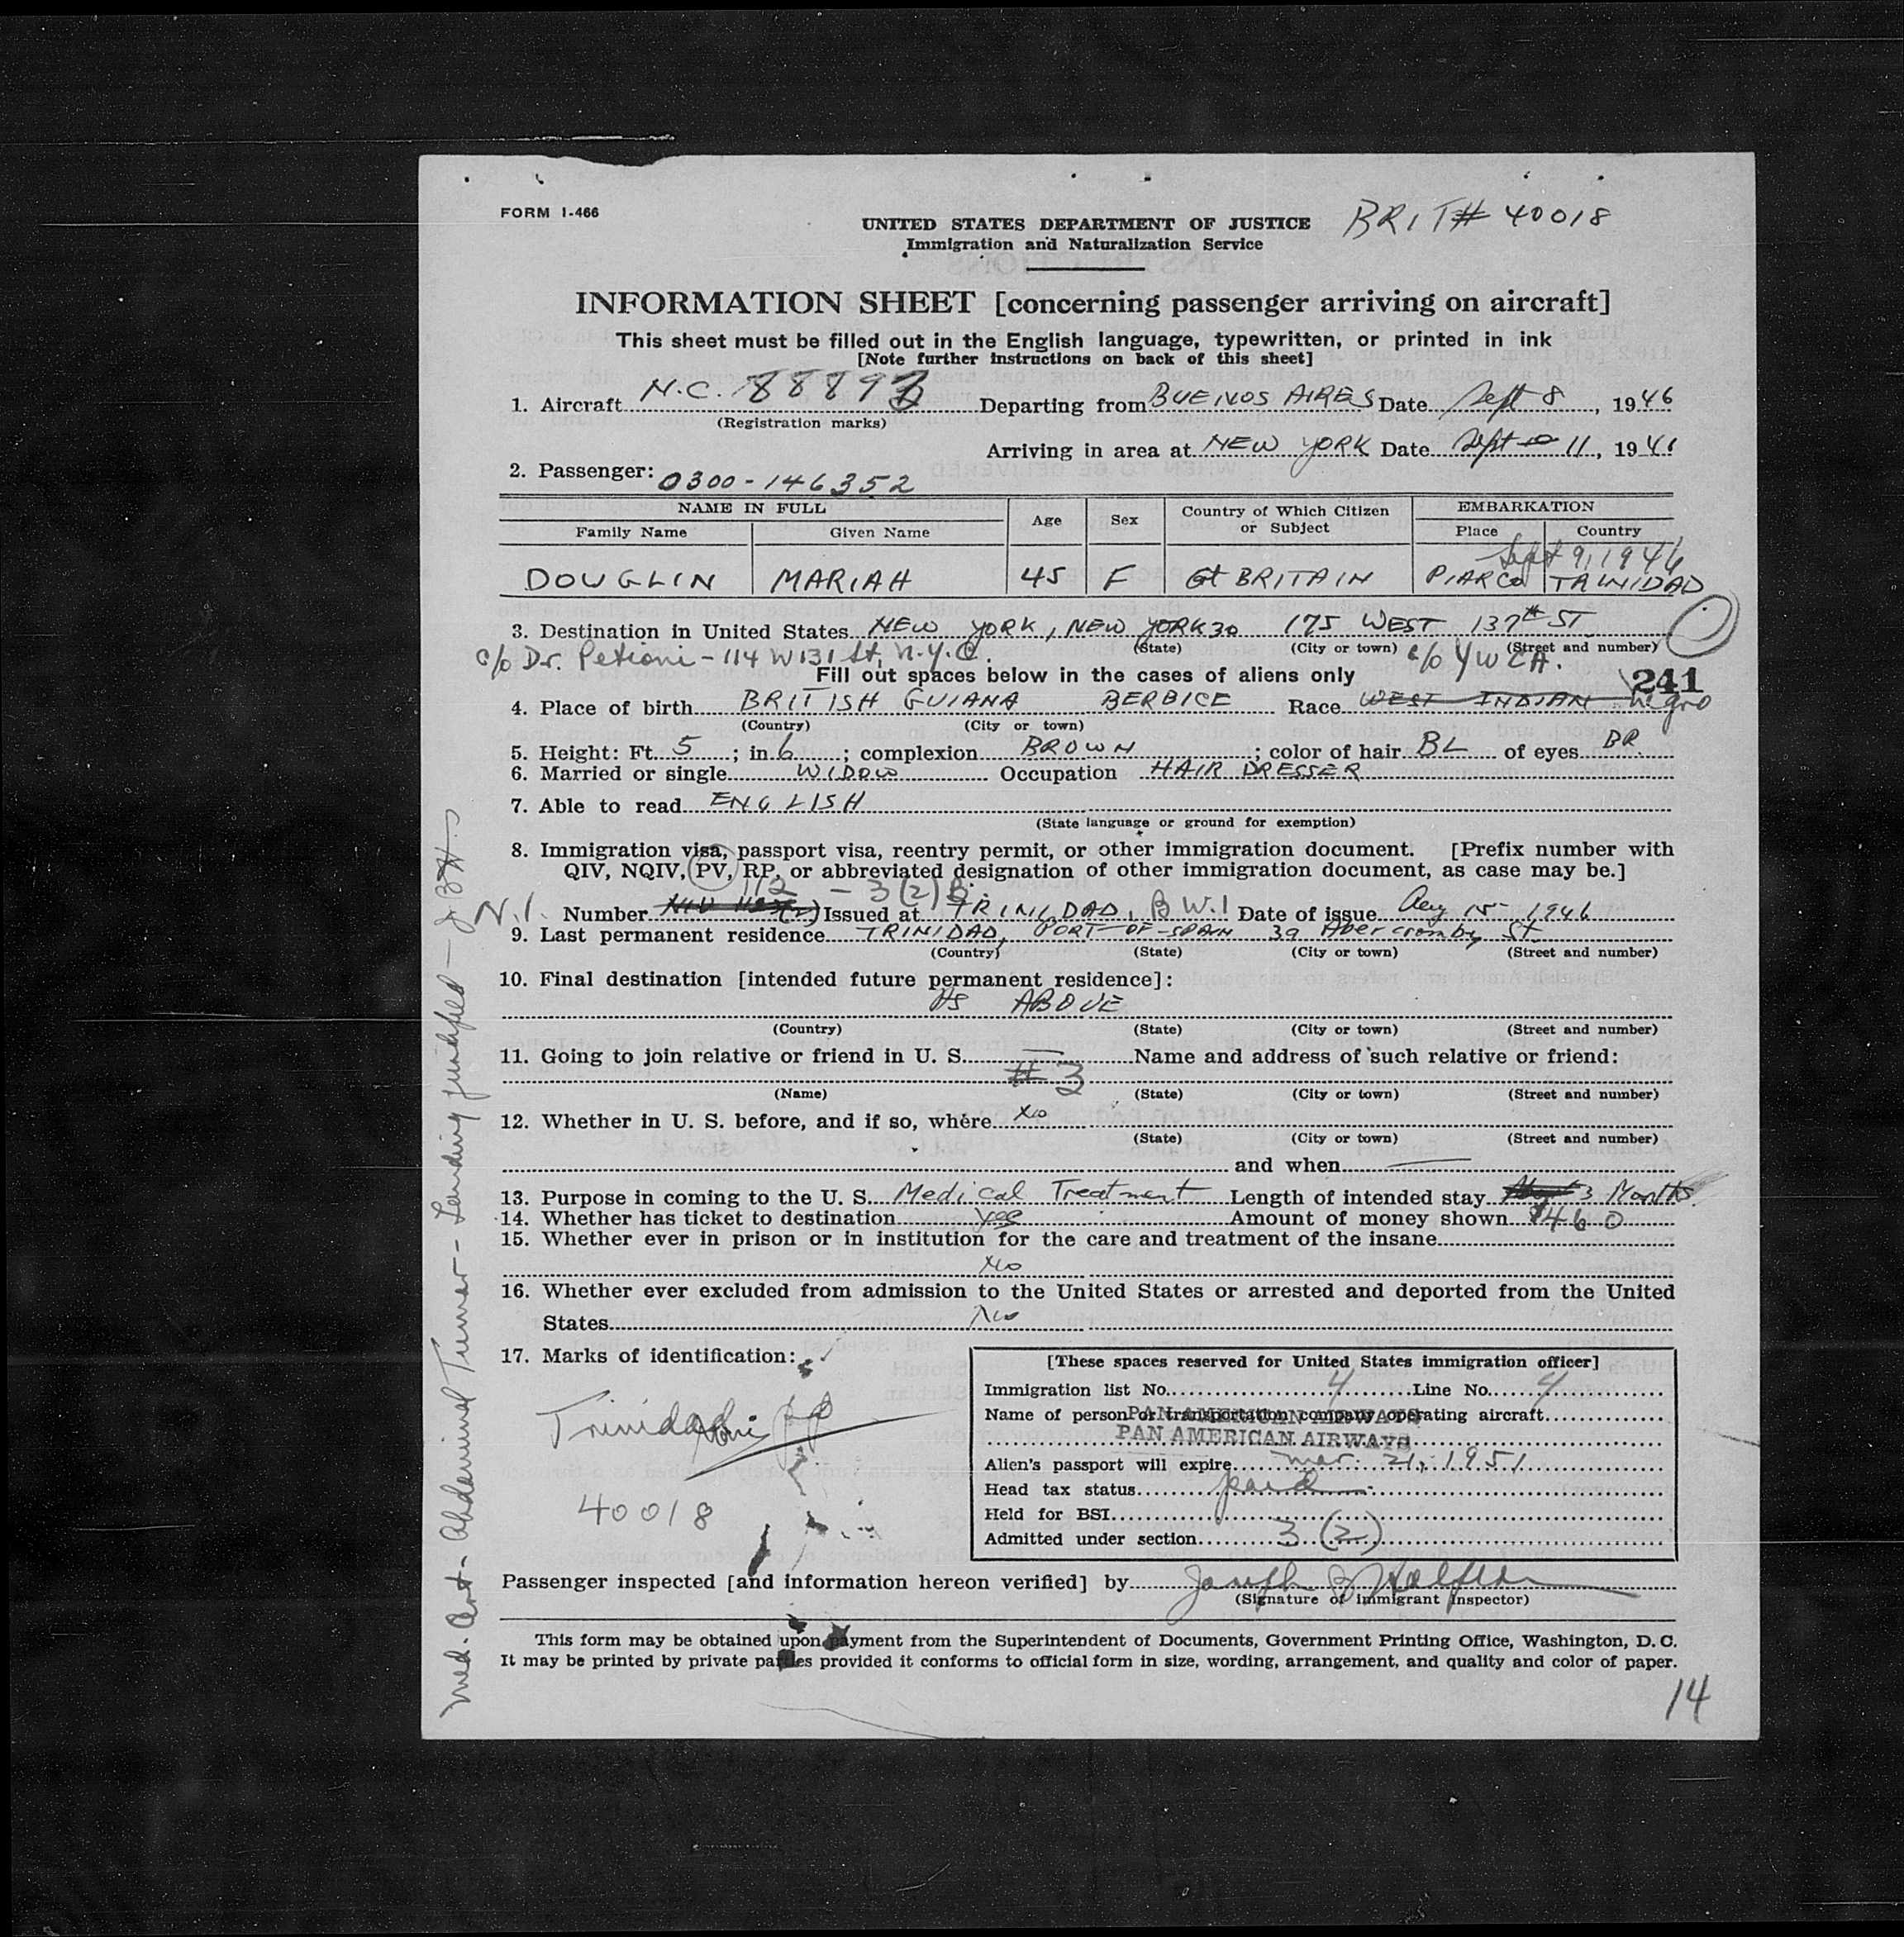 FORM I-466
UNITED STATES DEPARTMENT OF JUSTICE BRIT# 40018
Immigration and Naturalization Service
INFORMATION SHEET [concerning passenger arriving on aircraft]
This sheet must be filled out in the English language, typewritten, or printed in ink
[Note further instructions on back of this sheet]
1. Aircraft N.C. 8889 Departing from BUENOS AIRES Date Sept 8, 1946
(Registration marks)
Arriving in area at NEW YORK Date Sept 10 11, 1946
2. Passenger: 0300-146352
NAME IN FULL Age Sex Country of Which Citizen or Subject EMBARKATION
Family Name Given Name Place Country
Sept 9, 1946
DOUGLIN MARIAH 45 F Gt BRITAIN PIARCO TRINIDAD
3. Destination in United States NEW YORK, NEW YORK 30 175 WEST 137th ST
(State) (City or town) (Street and number)
c/o Dr. Petioni - 114 W 131 St, N.Y.C. c/o YWCA.
Fill out spaces below in the cases of aliens only 241
4. Place of birth BRITISH GUIANA BERBICE Race WEST INDIAN Negro
(Country) (City or town)
5. Height: Ft. 5; in 6; complexion BROWN; color of hair BL of eyes BR.
6. Married or single WIDOW Occupation HAIR DRESSER
7. Able to read ENGLISH
(State language or ground for exemption)
8. Immigration visa, passport visa, reentry permit, or other immigration document. [Prefix number with
QIV, NQIV, PV, RP, or abbreviated designation of other immigration document, as case may be.]
112 - 3(2)B
N.I. Number Issued at TRINIDAD, B W.I Date of issue Aug 15 1946
9. Last permanent residence TRINIDAD, PORT-OF-SPAIN 39 Abercromby St.
(Country) (State) (City or town) (Street and number)
10. Final destination [intended future permanent residence]:
AS ABOVE
(Country) (State) (City or town) (Street and number)
11. Going to join relative or friend in U. S. — Name and address of such relative or friend:
# 3
(Name) (State) (City or town) (Street and number)
12. Whether in U. S. before, and if so, where No
(State) (City or town) (Street and number)
and when —
13. Purpose in coming to the U. S. Medical Treatment Length of intended stay 3 Months
14. Whether has ticket to destination yes Amount of money shown $460
15. Whether ever in prison or in institution for the care and treatment of the insane
No
16. Whether ever excluded from admission to the United States or arrested and deported from the United
States No
17. Marks of identification:
Trinidad
40018
[These spaces reserved for United States immigration officer]
Immigration list No. 4 Line No. 4
Name of person or transportation company operating aircraft
PAN AMERICAN AIRWAYS
PAN AMERICAN AIRWAYS
Alien's passport will expire Mar. 21, 1951
Head tax status paid
Held for BSI
Admitted under section 3 (2)
Passenger inspected [and information hereon verified] by Joseph B
(Signature of Immigrant Inspector)
This form may be obtained upon payment from the Superintendent of Documents, Government Printing Office, Washington, D. C.
It may be printed by private parties provided it conforms to official form in size, wording, arrangement, and quality and color of paper.
14
Med. Cert - Abdominal Tumor - Landing